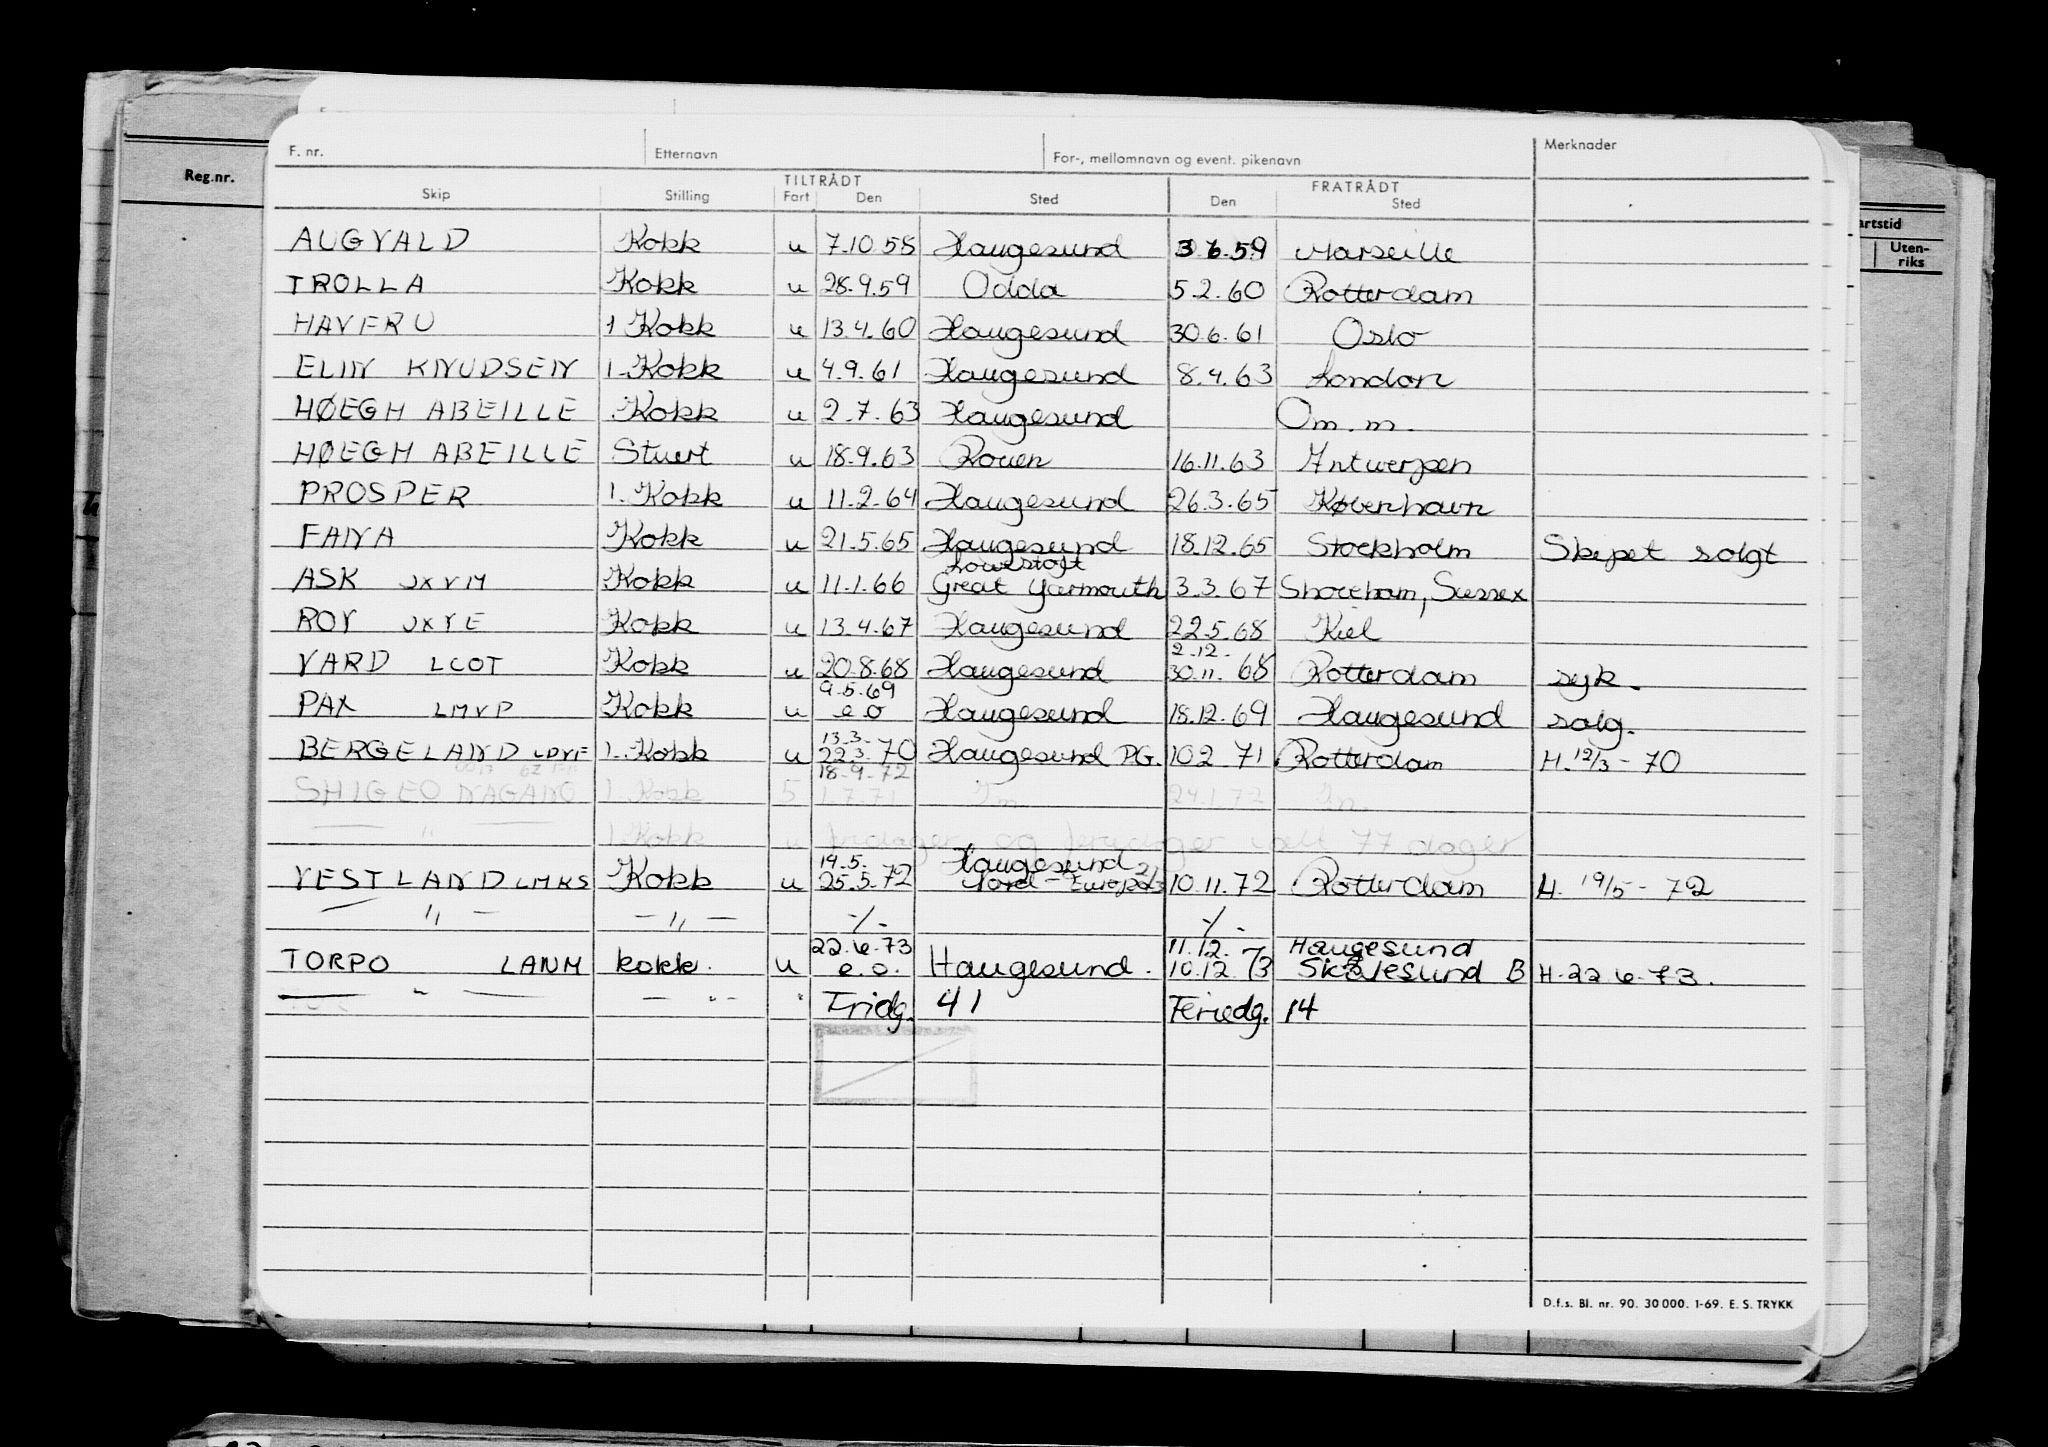 Reg.nr.
F. nr. Etternavn For-, mellomnavn og event. pikenavn Merknader
TILTRÅDT FRATRÅDT
Skip Stilling Fart Den Sted Den Sted
artstid
Uten-
riks
AUGVALD Kokk u 7.10.58 Haugesund 3.6.59 Marseille
TROLLA Kokk u 28.9.59 Odda 5.2.60 Rotterdam
HAVERU 1 Kokk u 13.4.60 Haugesund 30.6.61 Oslo
ELIN KNUDSEN 1. Kokk u 4.9.61 Haugesund 8.4.63 London
HØEGH ABEILLE Kokk u 2.7.63 Haugesund Om.m.
HØEGH ABEILLE Stuert u 18.9.63 Rouen 16.11.63 Antwerpen
PROSPER 1. Kokk u 11.2.64 Haugesund 26.3.65 København
FANA Kokk u 21.5.65 Haugesund 18.12.65 Stockholm Skipet solgt
Lowestoft
ASK JXVM Kokk u 11.1.66 Great Yarmouth 3.3.67 Shoreham, Sussex
ROY JXYE Kokk u 13.4.67 Haugesund 22.5.68 Kiel
2.12.
VARD LCOT Kokk u 20.8.68 Haugesund 30.11.68 Rotterdam syk.
9.5.69
PAX LMVP Kokk u e o Haugesund 18.12.69 Haugesund solg.
13.3.
BERGELAND 1. Kokk u 22.3.70 Haugesund PG. 10.2.71 Rotterdam H. 12/3-70
18.9.72
SHIGEO NAGANO 1. Kokk 5 1.7.71 Im 24.1.72 In.
— " — 1 Kokk u fridager og feriedager i alt 77 dager
19.5. Haugesund
VESTLAND LMKS Kokk u 25.5.72 Nord-Europa 10.11.72 Rotterdam H. 19/5-72
— " — — " — -/- -/-
22.6.73 11.12. Haugesund
TORPO LANM kokk. u e.o. Haugesund. 10.12.73 B H.22.6.73.
— " — — " — " Fridg. 41 Feriedg. 14
D.f.s. Bl. nr. 90. 30 000. 1-69. E. S. TRYKK